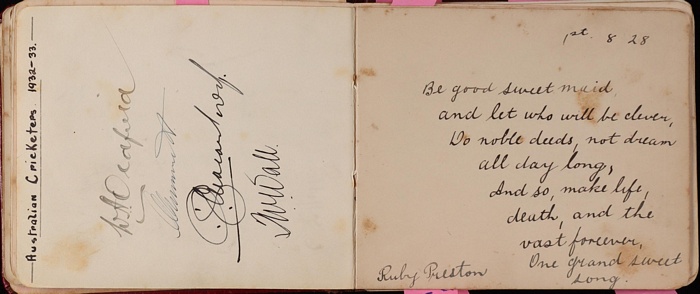 Australian Cricketers 1932-33.
W A Oldfield
T W Wall.
1st. 8 28
Be good sweet maid,
and let who will be clever,
Do noble deeds, not dream
all day long,
And so, make life,
death, and the
vast forever,
One grand sweet
song.
Ruby Preston